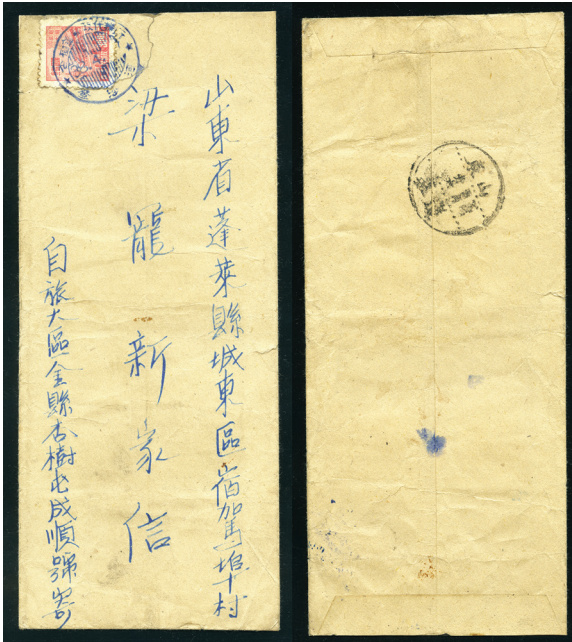 山東省蓬萊縣城東區宿駕埠村
梁罷新家信
自旅大區金縣杏樹屯成順號寄